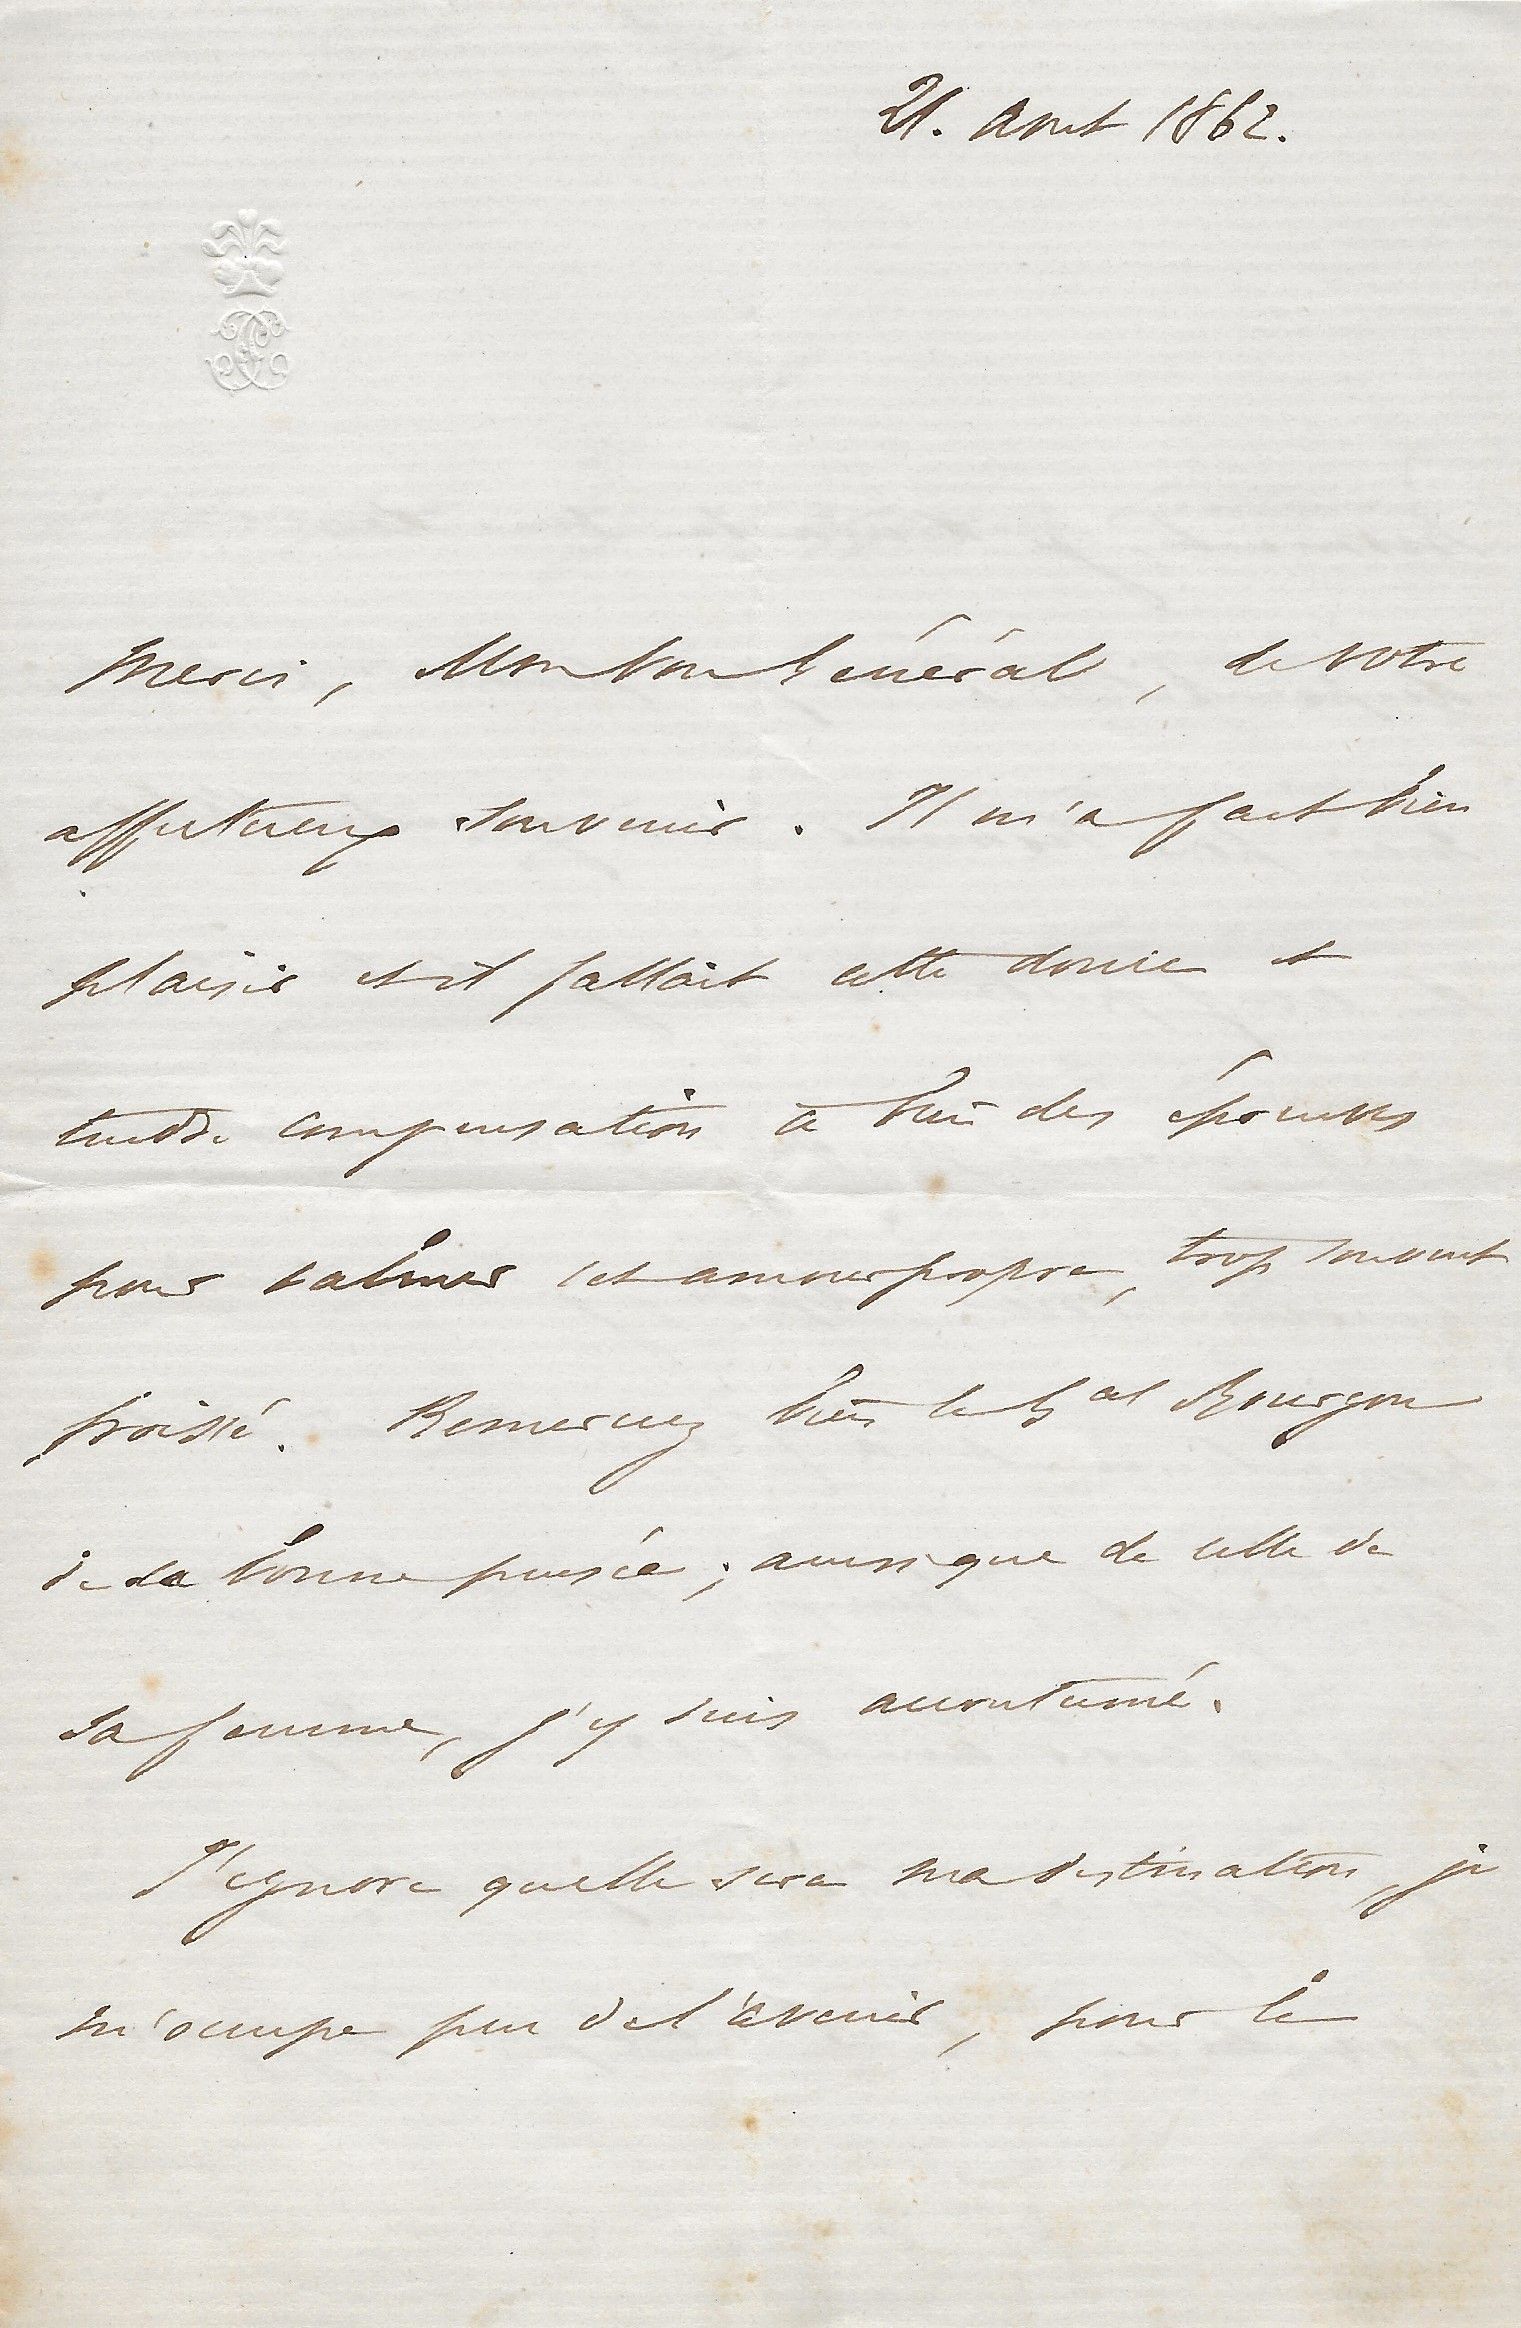 21. Aout 1862.
Merci, Mon bon Général, de votre
affectueux souvenir. Il m'a fait bien
plaisir et il fallait cette douce et
tendre compensation à bien des épreuves
pour calmer cet amour propre, trop souvent
froissé. Remerciez bien le Gal Bourgon
de sa bonne pensée; ainsi que de celle de
sa femme, j'y suis accoutumé.
J'ignore quelle sera ma destination, je
m'occupe peu de l'avenir, pour le